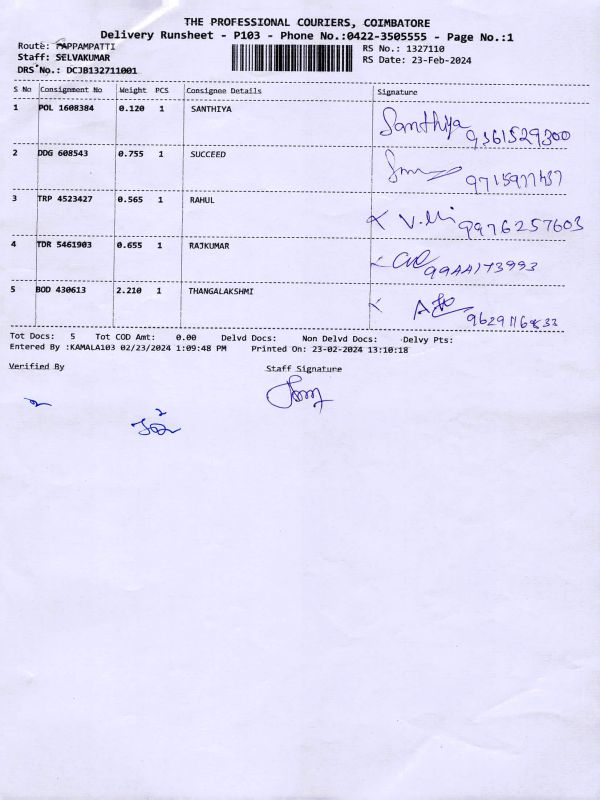 THE PROFESSIONAL COURIERS, COIMBATORE
Delivery Runsheet - P103 - Phone No.:0422-3505555 - Page No.:1
Route: PAPPAMPATTI
RS No.: 1327110
Staff: SELVAKUMAR
RS Date: 23-Feb-2024
DRS No.: DCJB132711001
S No Consignment No Weight PCS Consignee Details Signature
1 POL 1608384 0.120 1 SANTHIYA Santhiya 9361529300
2 DDG 608543 0.755 1 SUCCEED
3 TRP 4523427 0.565 1 RAHUL 9976257603
4 TDR 5461903 0.655 1 RAJKUMAR 9944173993
5 BOD 430613 2.210 1 THANGALAKSHMI
Tot Docs: 5 Tot COD Amt: 0.00 Delvd Docs: Non Delvd Docs: Delvy Pts:
Entered By :KAMALA103 02/23/2024 1:09:48 PM Printed On: 23-02-2024 13:10:18
Verified By Staff Signature